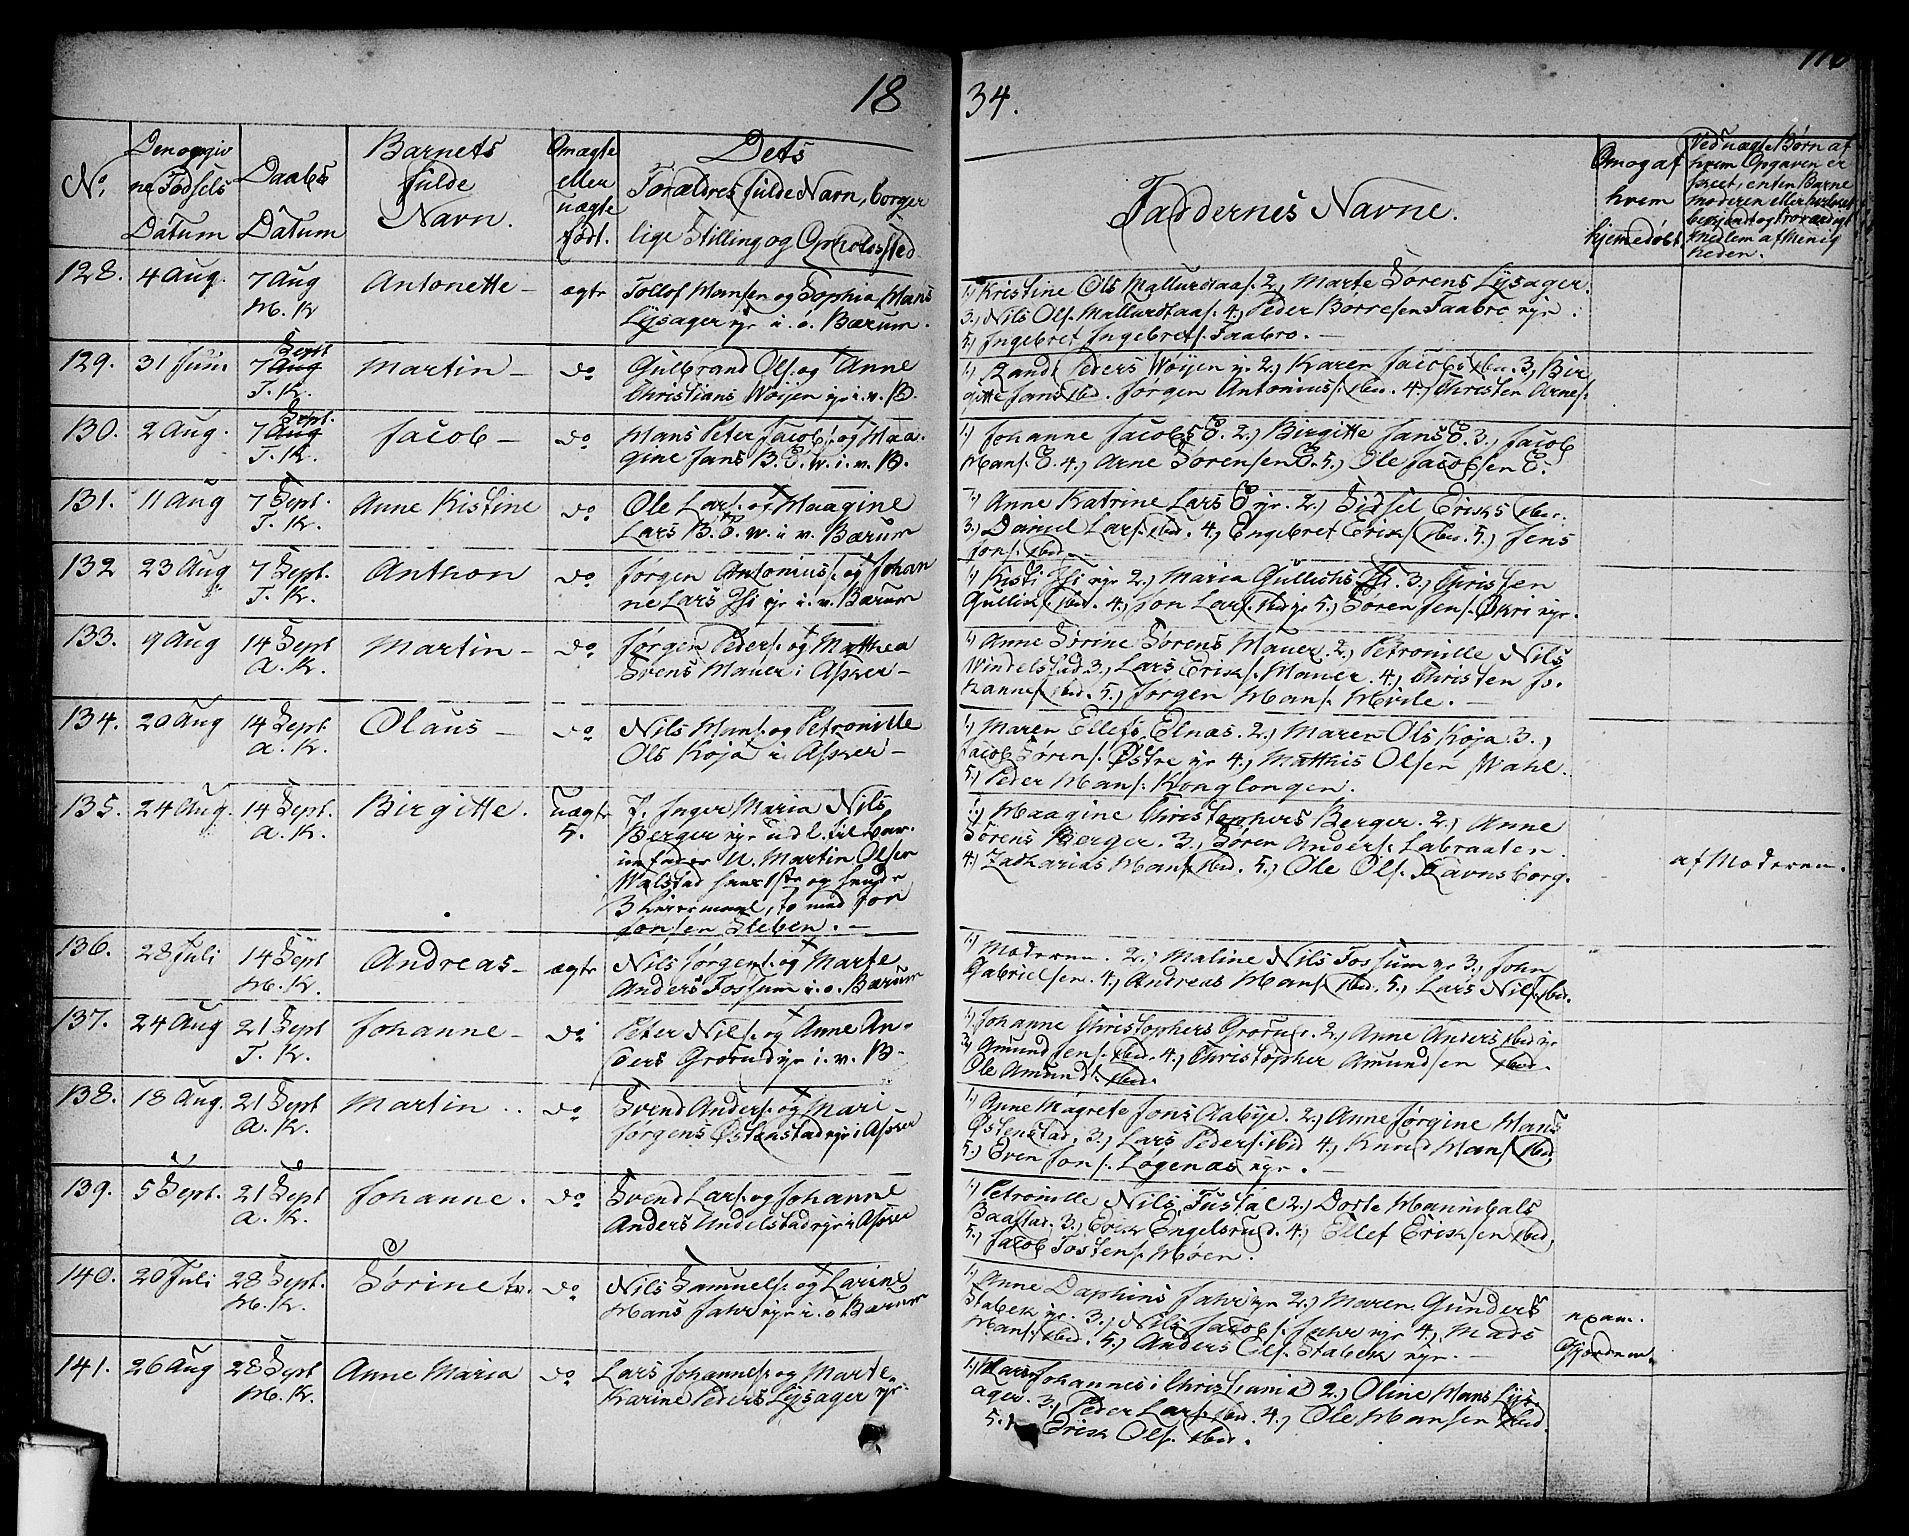 18
34.
No.
Den opgiv
ne Födsels
Datum
Daabs
Datum
Barnets
fulde
Navn.
Om ægte
eller
uægte
födt.
Dets
Forældres fulde Navn, borger
lige Stilling og Opholdssted
Faddernes Navne.
Om og af
hvem
hjemedöbt
Ved uægte Börn af
hvem Opgaven er
skeet, enten Barne
moderen eller
bekjendt og troværdigt
medlem af Menig
heden.
128.
4 Aug.
7 Aug
H. K
Antonette
ægte
Tollof Hansen og Sophia Hans
Lysager i ö. Bærum.
1.) Kristine Ols 2.) Marte Sörens Lysager.
3.) Nils Ols. 4.) Peder Börresen Faabro
5.) Ingebret Ingebrets. Faabro.
129.
31 Juni
Sept
7 Aug
T. K.
Martin
do
Gulbrand Ols. og Anne
Christians Wöyen i v. B.
1.) Randi Peders Wöyen 2.) Karen Jacobs ibid. 3.) Bir
gitte Jans ibid. Jörgen Antonius. ibid. 4.) Christen Arnes.
130.
2 Aug.
Sept.
7 Aug
T. K.
Jacob
do
Hans Peter Jacobs. og Maa
gine Jans B. V. i. v. B.
1.) Johanne Jacobs 2.) Birgitte Jans 3.) Jacob
Hans. 4.) Arne Sörensen 5.) Ole Jacobsen
131.
11 Aug
7 Sept.
T. K.
Anne Kistine
do
Ole Lars. og Maagine
Lars B. V. i v. Bærum
1.) Anne Katrine Lars 2.) Sidsel Eriks ibid.
3.) Daniel Lars. ibid. 4.) Engebret Eriks. ibid. 5.) Jens
Jons. ibid.
132
23 Aug
7 Sept.
T. K.
Anthon
do
Jörgen Antonius. og Johan
ne Lars i. v. Bærum
1.) Kisti 2.) Maria Gulliks 3.) Christen
Gulliks. ibid. 4.) Jon Lars. ibid 5.) Sören Jens.
133.
9 Aug
14 Sept
A. K.
Martin
do
Jörgen Peders. og Matthea
Svens Hauer i Asker
1.) Anne Sörine Sörens Hauer. 2.) Petronille Nils
Windelstad 3.) Lars Eriks. Hauer. 4.) Christen Jo-
hannes. ibid. 5.) Jörgen Hans. Hvile.
134.
20 Aug
14 Sept.
A. K.
Olaus
do
Nils Hans. og Petronille
Ols Köja i Asker
1.) Maren Ellefs Elnas. 2.) Maren Ols Köja. 3.)
Jacob Sörens. Östre 4.) Matthis Olsen Wahl.
5.) Peder Hans. Konglongen.
135.
24 Aug.
14 Sept.
A. K.
Birgitte.
uægte
5.
P. Inger Maria Nils
Berger udl. til Bar-
nefader U. Martin Olsen
Walstad hans 1ste og hendes
3 Leiermaal, to med Jon
Jonsen Sleben.
1.) Maagine Christophers Berger. 2.) Anne
Sörens Berger. 3.) Sören Anders. Labraaten.
4.) Zacharias Hans. ibid. 5.) Ole Ols. Ravnsborg.
af Moderen.
136.
28 Juli
14 Sept
H. K.
Andreas
ægte
Nils Jörgens. og Marte
Anders Fossum i. ö. Bærum
1.) Moderen. 2.) Maline Nils Fossum 3.) John
Gabrielsen. 4.) Andreas Hans. ibid. 5.) Lars Nils. ibid.
137.
24 Aug
21 Sept
T. K.
Johanne
do
Peter Nils. og Anne An-
ders Grorud i. v. B.
1.) Johanne Christophers Grorud. 2.) Anne Anders ibid
3.) Amund Jens. ibid. 4.) Christopher Amundsen ibid.
Ole Amunds. ibid.
138.
18 Aug.
21 Sept
A. K.
Martin
do
Svend Anders. og Mari
Jörgens Östenstad i Asker
1.) Anne Magrete Jons Aabye. 2.) Anne Jörgine Hans
Östenstad. 3.) Lars Peders. ibid 4.) Knud Hans. ibid.
5.) Even Jons. Lögenas.
139.
5 Sept.
21 Sept
A. K.
Johanne.
do
Svend Lars. og Johanne
Anders Undelstad i Asker
1.) Petronille Nils Tustal 2.) Dorte Hannibals
Baastad. 3.) Erik Engelsrud. 4.) Ellef Eriksen ibid.
5.) Jacob Tostens. Möen.
140.
20 Juli
28 Sept.
H. K.
Sörine
do
Nils Samuels. og Larine
Hans Jahr i. ö Bærum
1.) Anne Daphins Jahr 2.) Maren Gunders
Stabek 3.) Nils Jacobs. Jahr 4.) Mads
Hans. ibid. 5.) Anders Ols. Stabek
exam.
141.
26 Aug
28 Sept
H. K.
Anne Maria
do
Lars Johannes. og Marte
Karine Peders Lysager
1.) Johannes i Christiania 2.) Oline Hans Lys-
ager. 3.) Peder Lars. ibid. 4.) Ole Hansen ibid.
5.) Erik Ols. ibid.